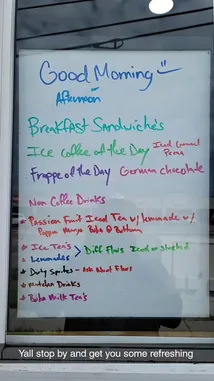 Good Morning
Afternoon
Breakfast Sandwiche's
Ice Coffee of the Day Iced Caramel
Frappe of the Day German chocolate
Non Coffee Drinks
* Passion Fruit Iced Tea w/ lemonade w/
Mango Boba @ Bottom
* Ice Tea's > Diff Flavs Iced or
* Lemonades
* Dirty Sprites - Ask About Flavs
* Matcha Drinks
* Boba Milk Tea's
Yall stop by and get you some refreshing